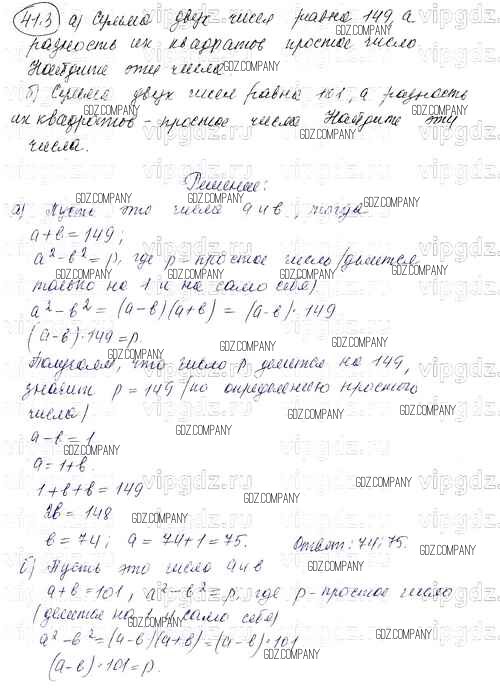 41.3 а) Сумма двух чисел равна 149, а
разность их квадратов простое число.
Найдите эти числа
б) Сумма двух чисел равна 101, а разность
их квадратов - простое число Найдите эти
числа.
Решение:
а) Пусть это числа a и b, тогда
a + b = 149;
a² - b² = p, где p - простое число (делится
только на 1 и на само себя)
a² - b² = (a-b)(a+b) = (a-b)·149
(a-b)·149 = p.
Получаем, что число p делится на 149,
значит p = 149 (по определению простого
числа)
a-b = 1
a = 1+b.
1+b+b = 149
2b = 148
b = 74; a = 74+1 = 75. Ответ: 74; 75.
б) Пусть это числа a и b
a+b = 101, a² - b² = p, где p - простое число
(делится на 1 и само себя)
a² - b² = (a-b)(a+b) = (a-b)·101
(a-b)·101 = p.